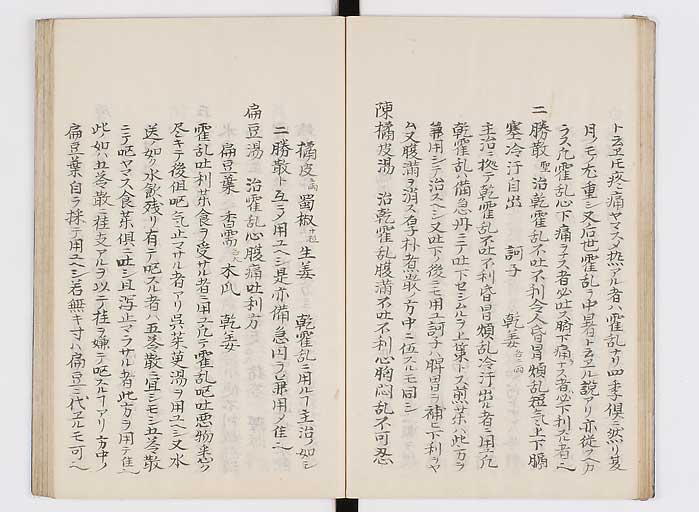 トモ疼痛ヤマス又熱アル者ハ霍乱ナリ四季倶ニ然リ夏
月ノモノ尤重シ又后世霍乱ヲ中暑ト云ヘル説アリ亦従フヘカ
ラス凡霍乱心下痛ヲナス者必吐ス臍下痛ナス者必下利スル者也
二勝散 聖 治乾霍乱不吐不利令人昏冒煩乱短気上下膈
塞冷汗自出 訶子 乾姜 各二両
主治ニ拠テ乾霍乱不吐不利昏冒煩乱冷汗出ル者ニ用ユ凡
乾霍乱ハ備急円ニテ吐下セシムルヲ上策トス煎薬ハ此方ヲ
兼用シテ治スヘシ又吐下ノ後ニモ用ユ訶子ハ脾胃ヲ補ヒ下利ヲヤ
ム又腹満ヲ消ス皂朴煮散ノ方中ニ伍スルモ同シ
陳橘皮湯 治乾霍乱腹満不吐不利心胸悶乱不可忍
橘皮 二両 蜀椒 廿粒 生姜 乾霍乱ニ用ルヿ主治ノ如シ
二勝散ト互ニ用ユヘシ是亦備急円ヲ兼用ノ佳也
扁豆湯 治霍乱心腹痛吐利方
扁豆葉 香薷 各二 木瓜 乾姜
霍乱吐利薬食ヲ受サル者ニ用ユ凡テ霍乱嘔吐悪物
尽キテ後但嘔気止マサル者アリ呉茱萸湯ヲ用ユヘシ又水
送ノ如ク水飲残リ有テ嘔スル者ハ五苓散ニ宜シモシ五苓散
ニテ嘔ヤマス食薬倶ニ吐シ且瀉止マラサル者此方ヲ用テ佳也
此ノ如ハ五苓散ニ桂支アルヲ以テ桂ヲ嫌テ嘔スルヿアリ方中ノ
扁豆葉自ラ採テ用ユヘシ若無キ寸ハ扁豆ニ代ユルモ可也